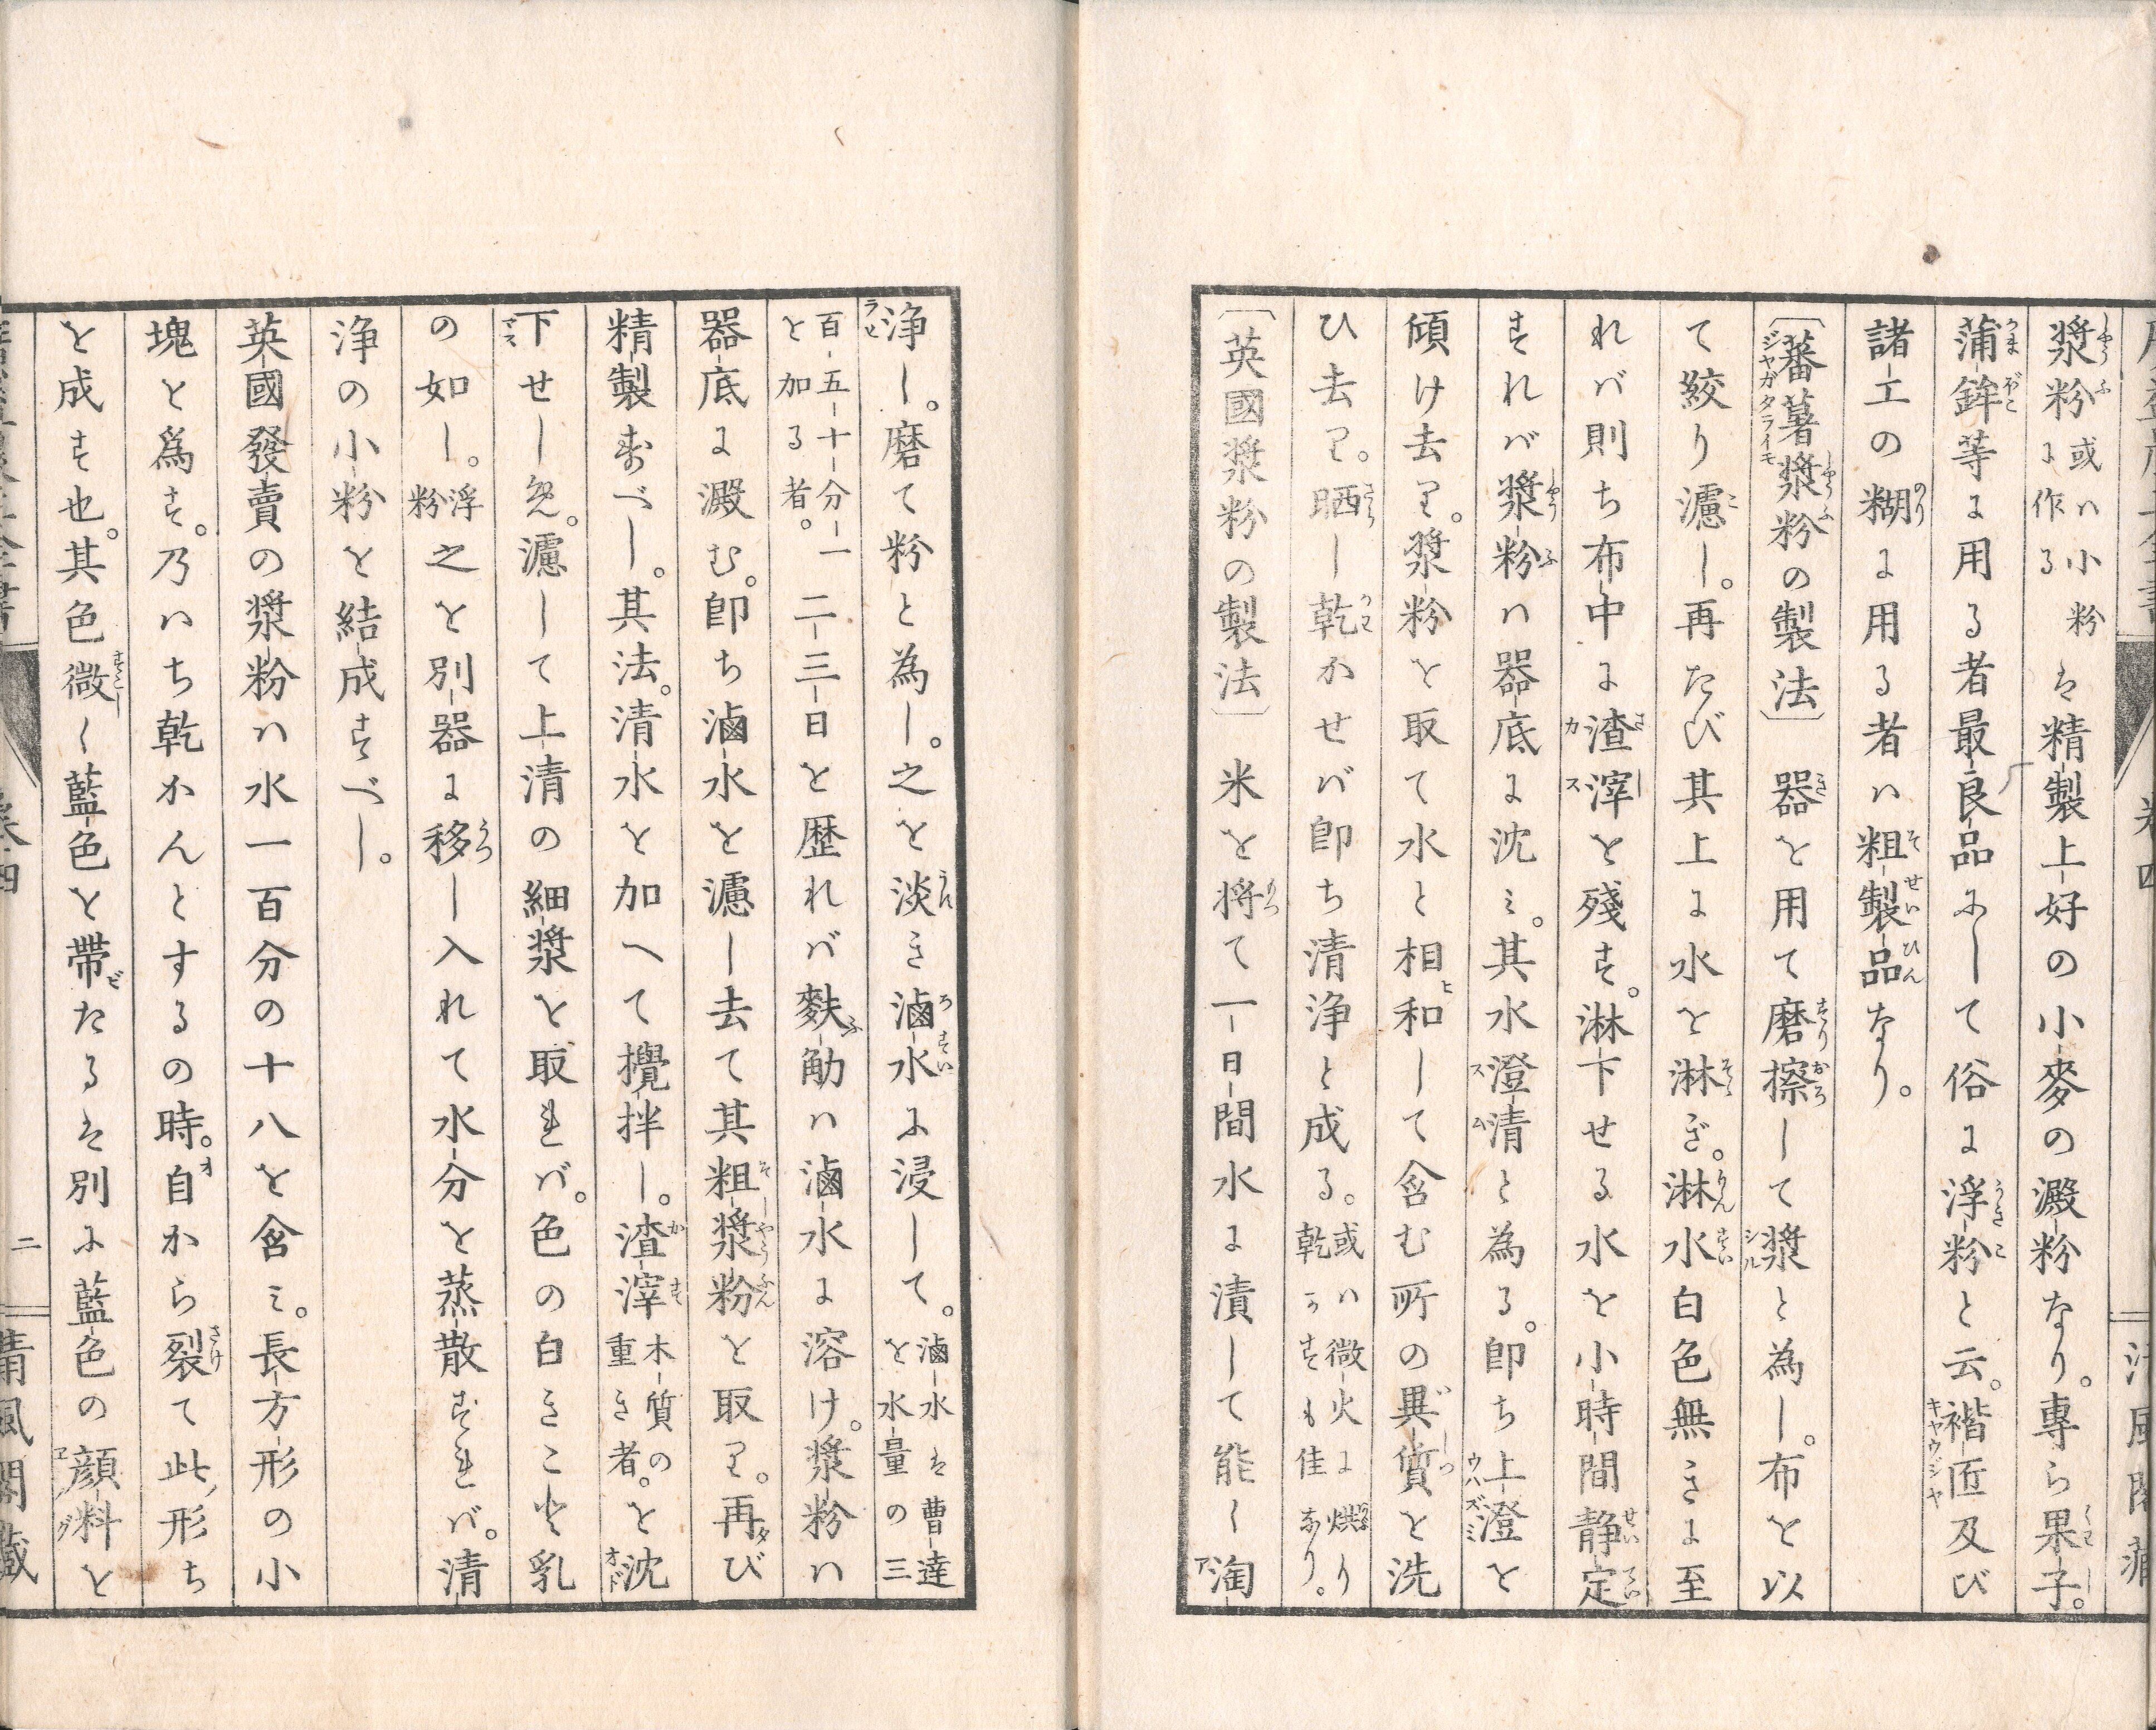 漿粉或ハ小粉に作るは精製上好の小麥の澱粉なり。專ら果子。
蒲鉾等に用る者最良品にして俗に浮粉と云。褙匠及び
諸工の糊に用る者ハ粗製品なり。
〔蕃薯漿粉の製法〕 器を用て磨擦して漿と為し。布を以
て絞り濾し。再たび其上に水を淋ぎ。淋水白色無きに至
れバ則ち布中に渣滓を殘す。淋下せる水を小時間靜定
すれバ漿粉ハ器底に沈ミ。其水澄清と為る。卽ち上澄を
傾け去り。漿粉を取て水と相和して含む所の異質を洗
ひ去り。晒し乾かせバ卽ち清浄と成る。或ハ微火に烘り乾かすも佳なり。
〔英國漿粉の製法〕 米を将て一日間水に漬して能く淘
浄し。磨て粉と為し。之を淡き滷水に浸して。滷水は曹達を水量の三
百五十分一を加る者。二三日を歴れバ麩筋ハ滷水に溶け。漿粉ハ
器底に澱む。卽ち滷水を濾し去て其粗漿粉を取り。再び
精製すべし。其法。清水を加へて攪拌し。渣滓木質の重き者。を沈
下せしめ。濾して上清の細漿を取れバ。色の白きこと乳
の如し。浮粉之を別器に移し入れて水分を蒸散すれバ。清
浄の小粉を結成すべし。
英國發賣の漿粉ハ水一百分の十八を含ミ。長方形の小
塊と爲す。乃ハち乾かんとするの時。自から裂て此形ち
を成す也。其色微し藍色を帶たるは別に藍色の顔料を
二